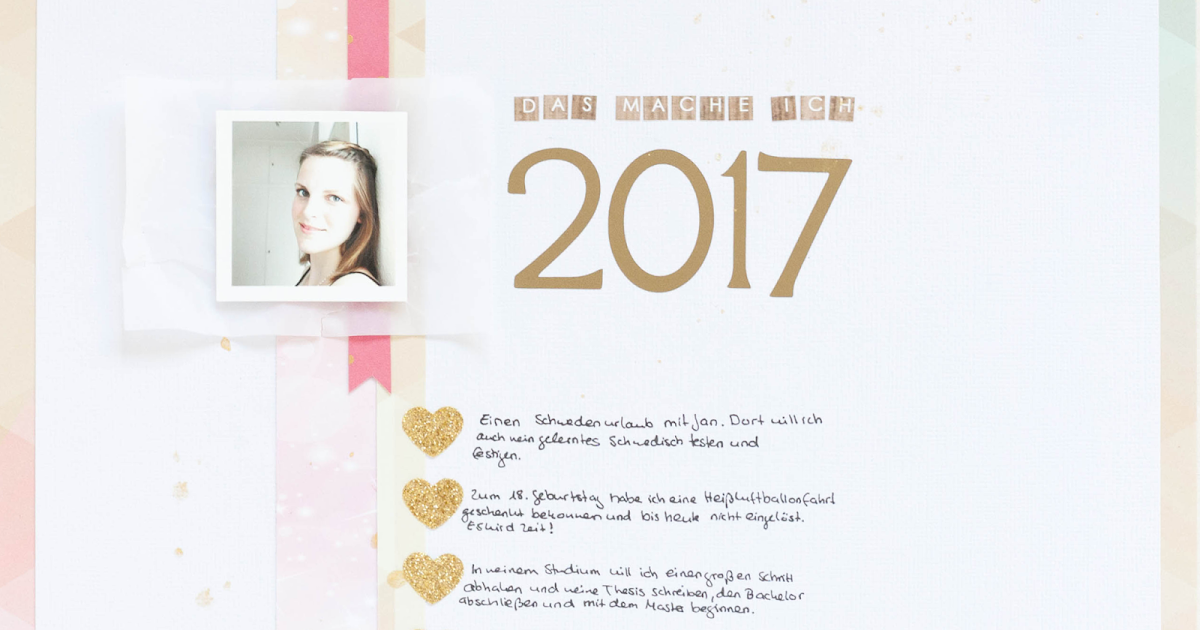 DAS MACHE ICH
2017
Einen Schwedenurlaub mit Jan. Dort will ich
auch mein gelerntes Schwedisch testen und
festigen.
Zum 18. Geburtstag habe ich eine Heißluftballonfahrt
geschenkt bekommen und bis heute nicht eingelöst.
Es wird Zeit!
In meinem Studium will ich einen großen Schritt
abhaken und meine Thesis schreiben, den Bachelor
abschließen und mit dem Master beginnen.